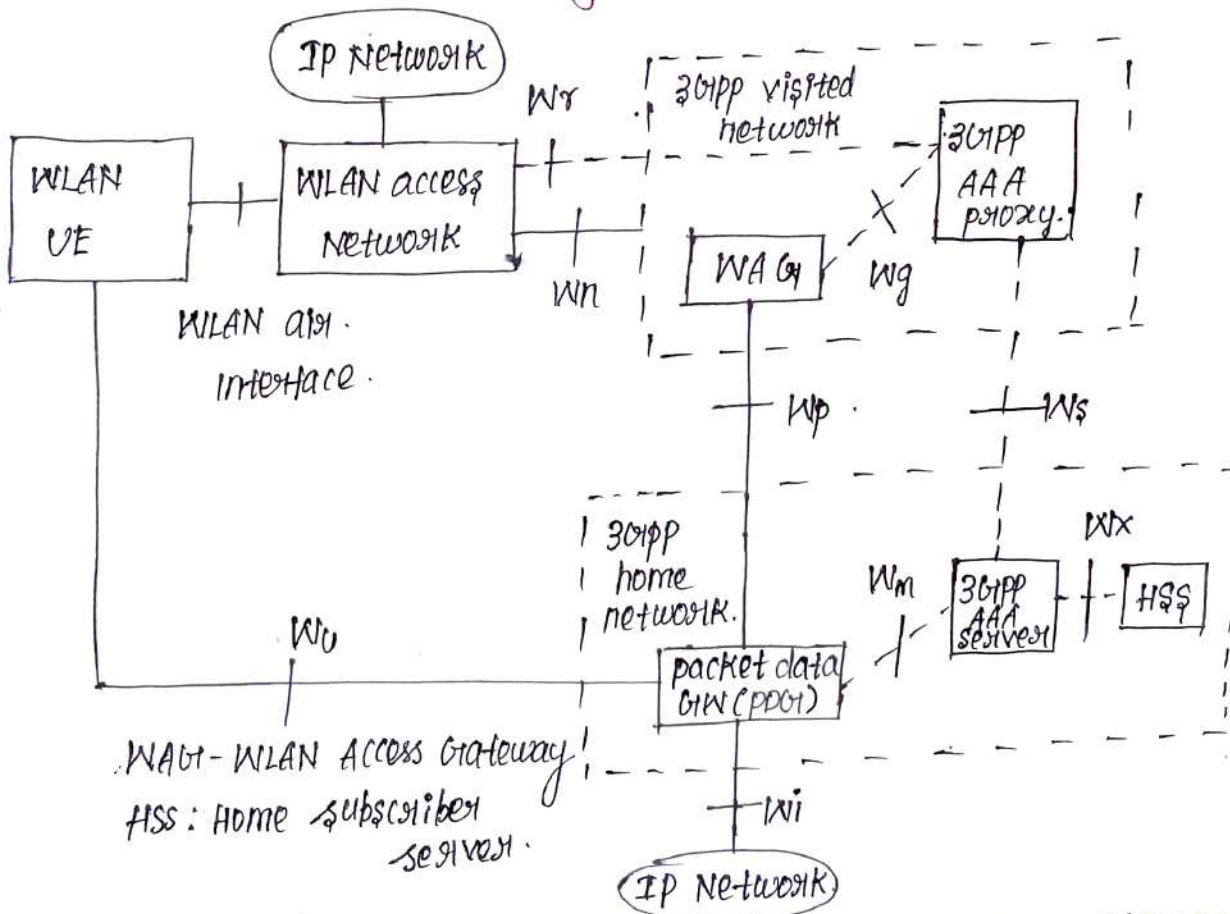 IP Network
Wr
3GPP visited
network
3GPP
AAA
proxy.
WLAN
UE
WLAN access
Network
WAG
Wg
Wn
WLAN air.
interface.
Wp.
Ws
3GPP
home
network.
Wm
3GPP
AAA
server
Wx
HSS
Wu
packet data
GW (PDG)
WAG - WLAN Access Gateway
HSS : Home subscriber
server.
Wi
IP Network